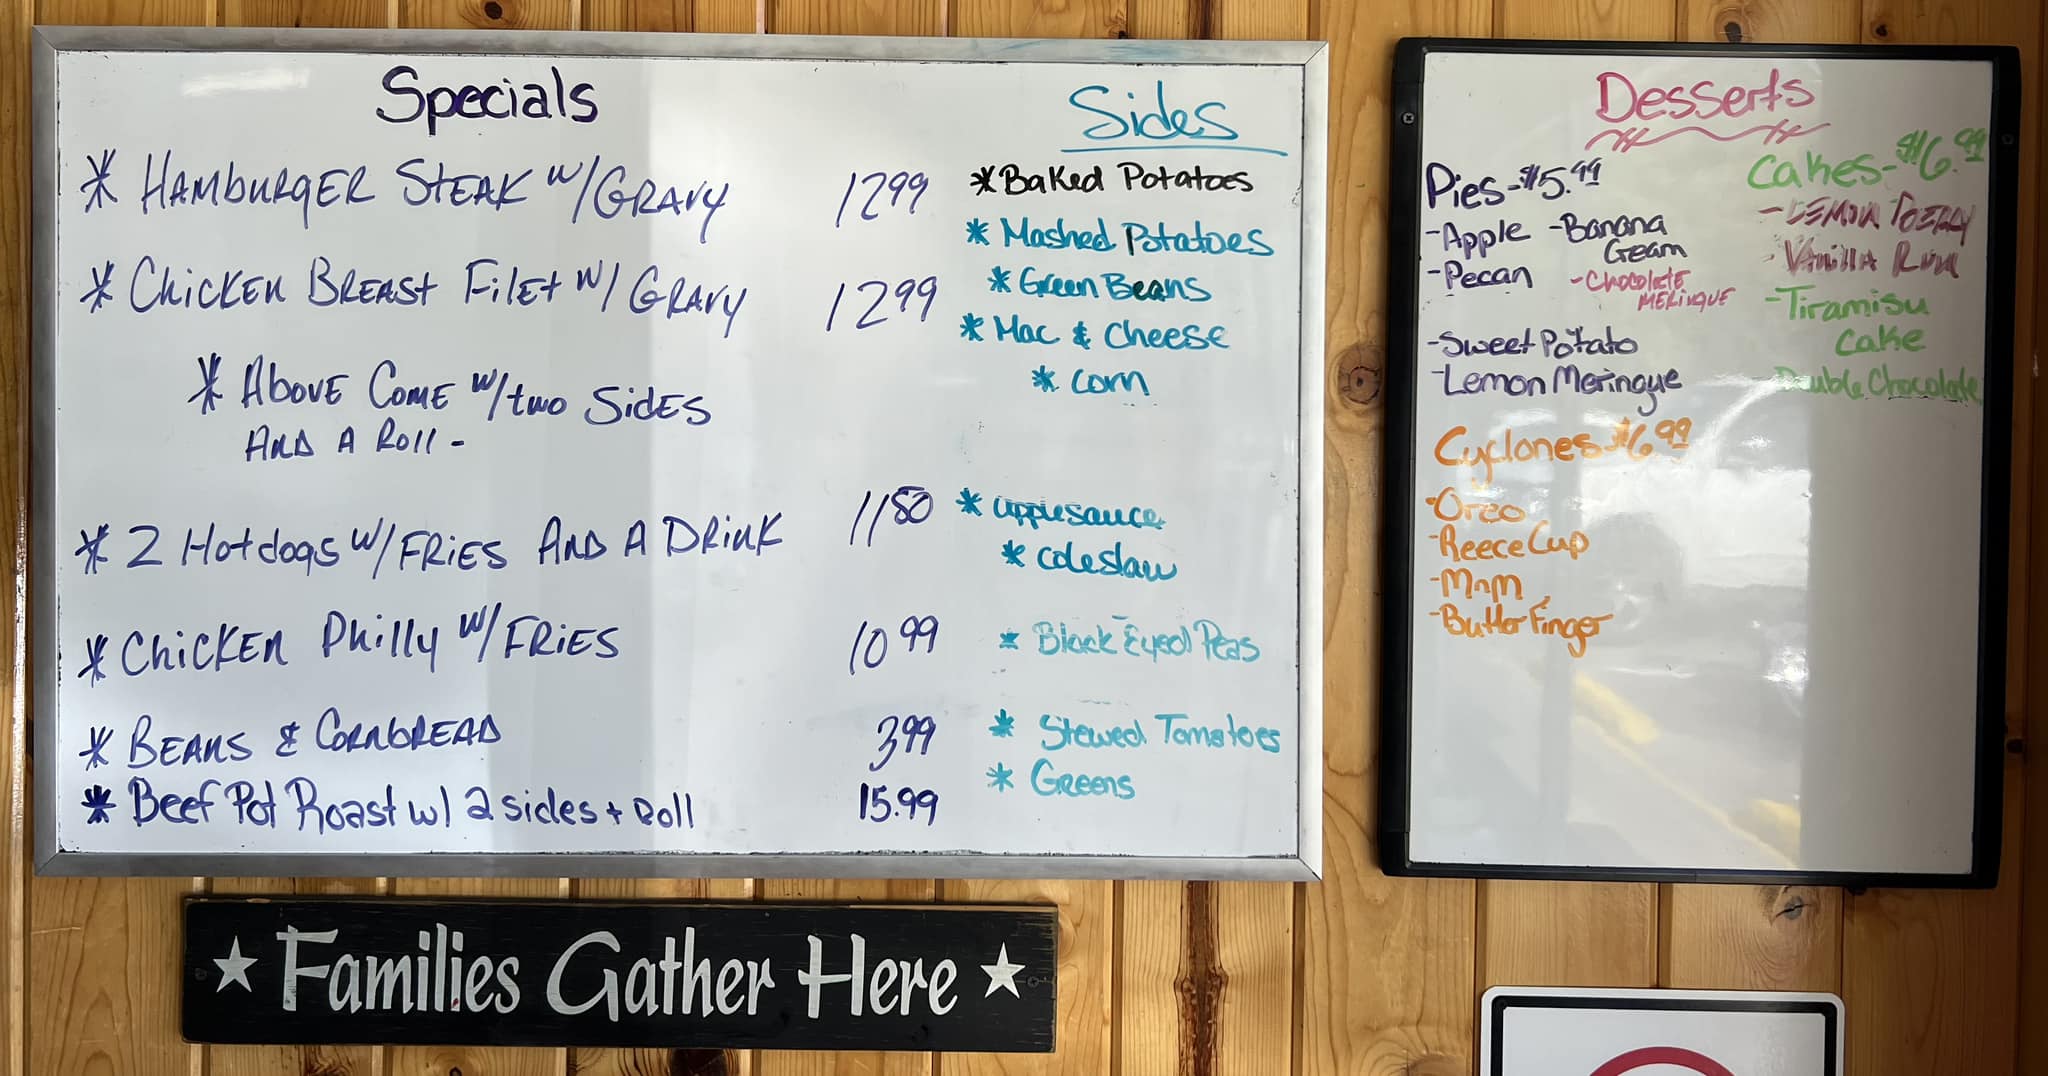 Specials
* HAMBURGER STEAK w/GRAVY 1299
* CHICKEN BREAST FILET w/ GRAVY 1299
* ABOVE COME w/two SIDES
AND A ROLL -
* 2 Hotdogs w/FRIES AND A DRINK 1150
* CHICKEN PHILLY w/FRIES 1099
* BEANS & CORNBREAD 399
* Beef Pot Roast w/ 2 sides + Roll 15.99
Sides
* Baked Potatoes
* Mashed Potatoes
* Green Beans
* Mac & Cheese
* corn
* applesauce
* coleslaw
* Black Eyed Peas
* Stewed Tomatoes
* Greens
Desserts
Pies-$5.99
-Apple
-Pecan
-Banana
Cream
-CHOCOLATE
MERINGUE
-Sweet Potato
-Lemon Meringue
Cakes-$6.99
-LEMON
-Vanilla Rum
-Tiramisu
Cake
-Double Chocolate
Cyclones-$6.99
-Oreo
-Reece Cup
-MnM
-Butter Finger
Families Gather Here